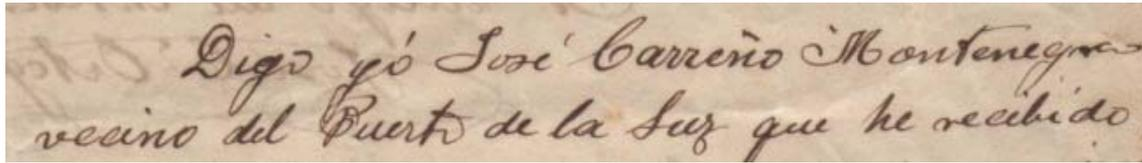 Digo yó José Carreño Montenegro
vecino del Puerto de la Luz que he recibido